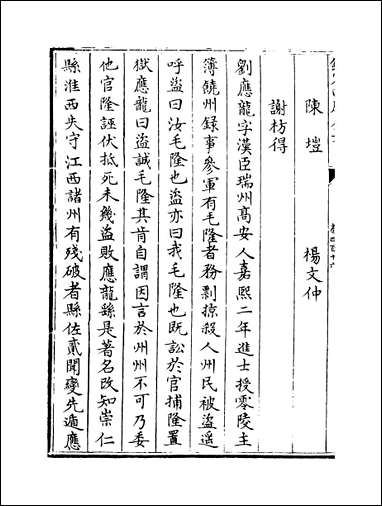 陳塏　楊文仲
謝枋得
劉應龍字漢臣瑞州髙安人嘉熙二年進士授零陵主
簿饒州録事參軍有毛隆者務剽掠殺人州民被盗遥
呼盗曰汝毛隆也盗亦曰我毛隆也既訟於官捕隆置
獄應龍曰盗誠毛隆其肯自謂因言於州州不可乃委
他官隆誣伏抵死未幾盗敗應龍繇是著名改知崇仁
縣淮西失守江西諸州有殘破者縣佐貳聞變先遁應